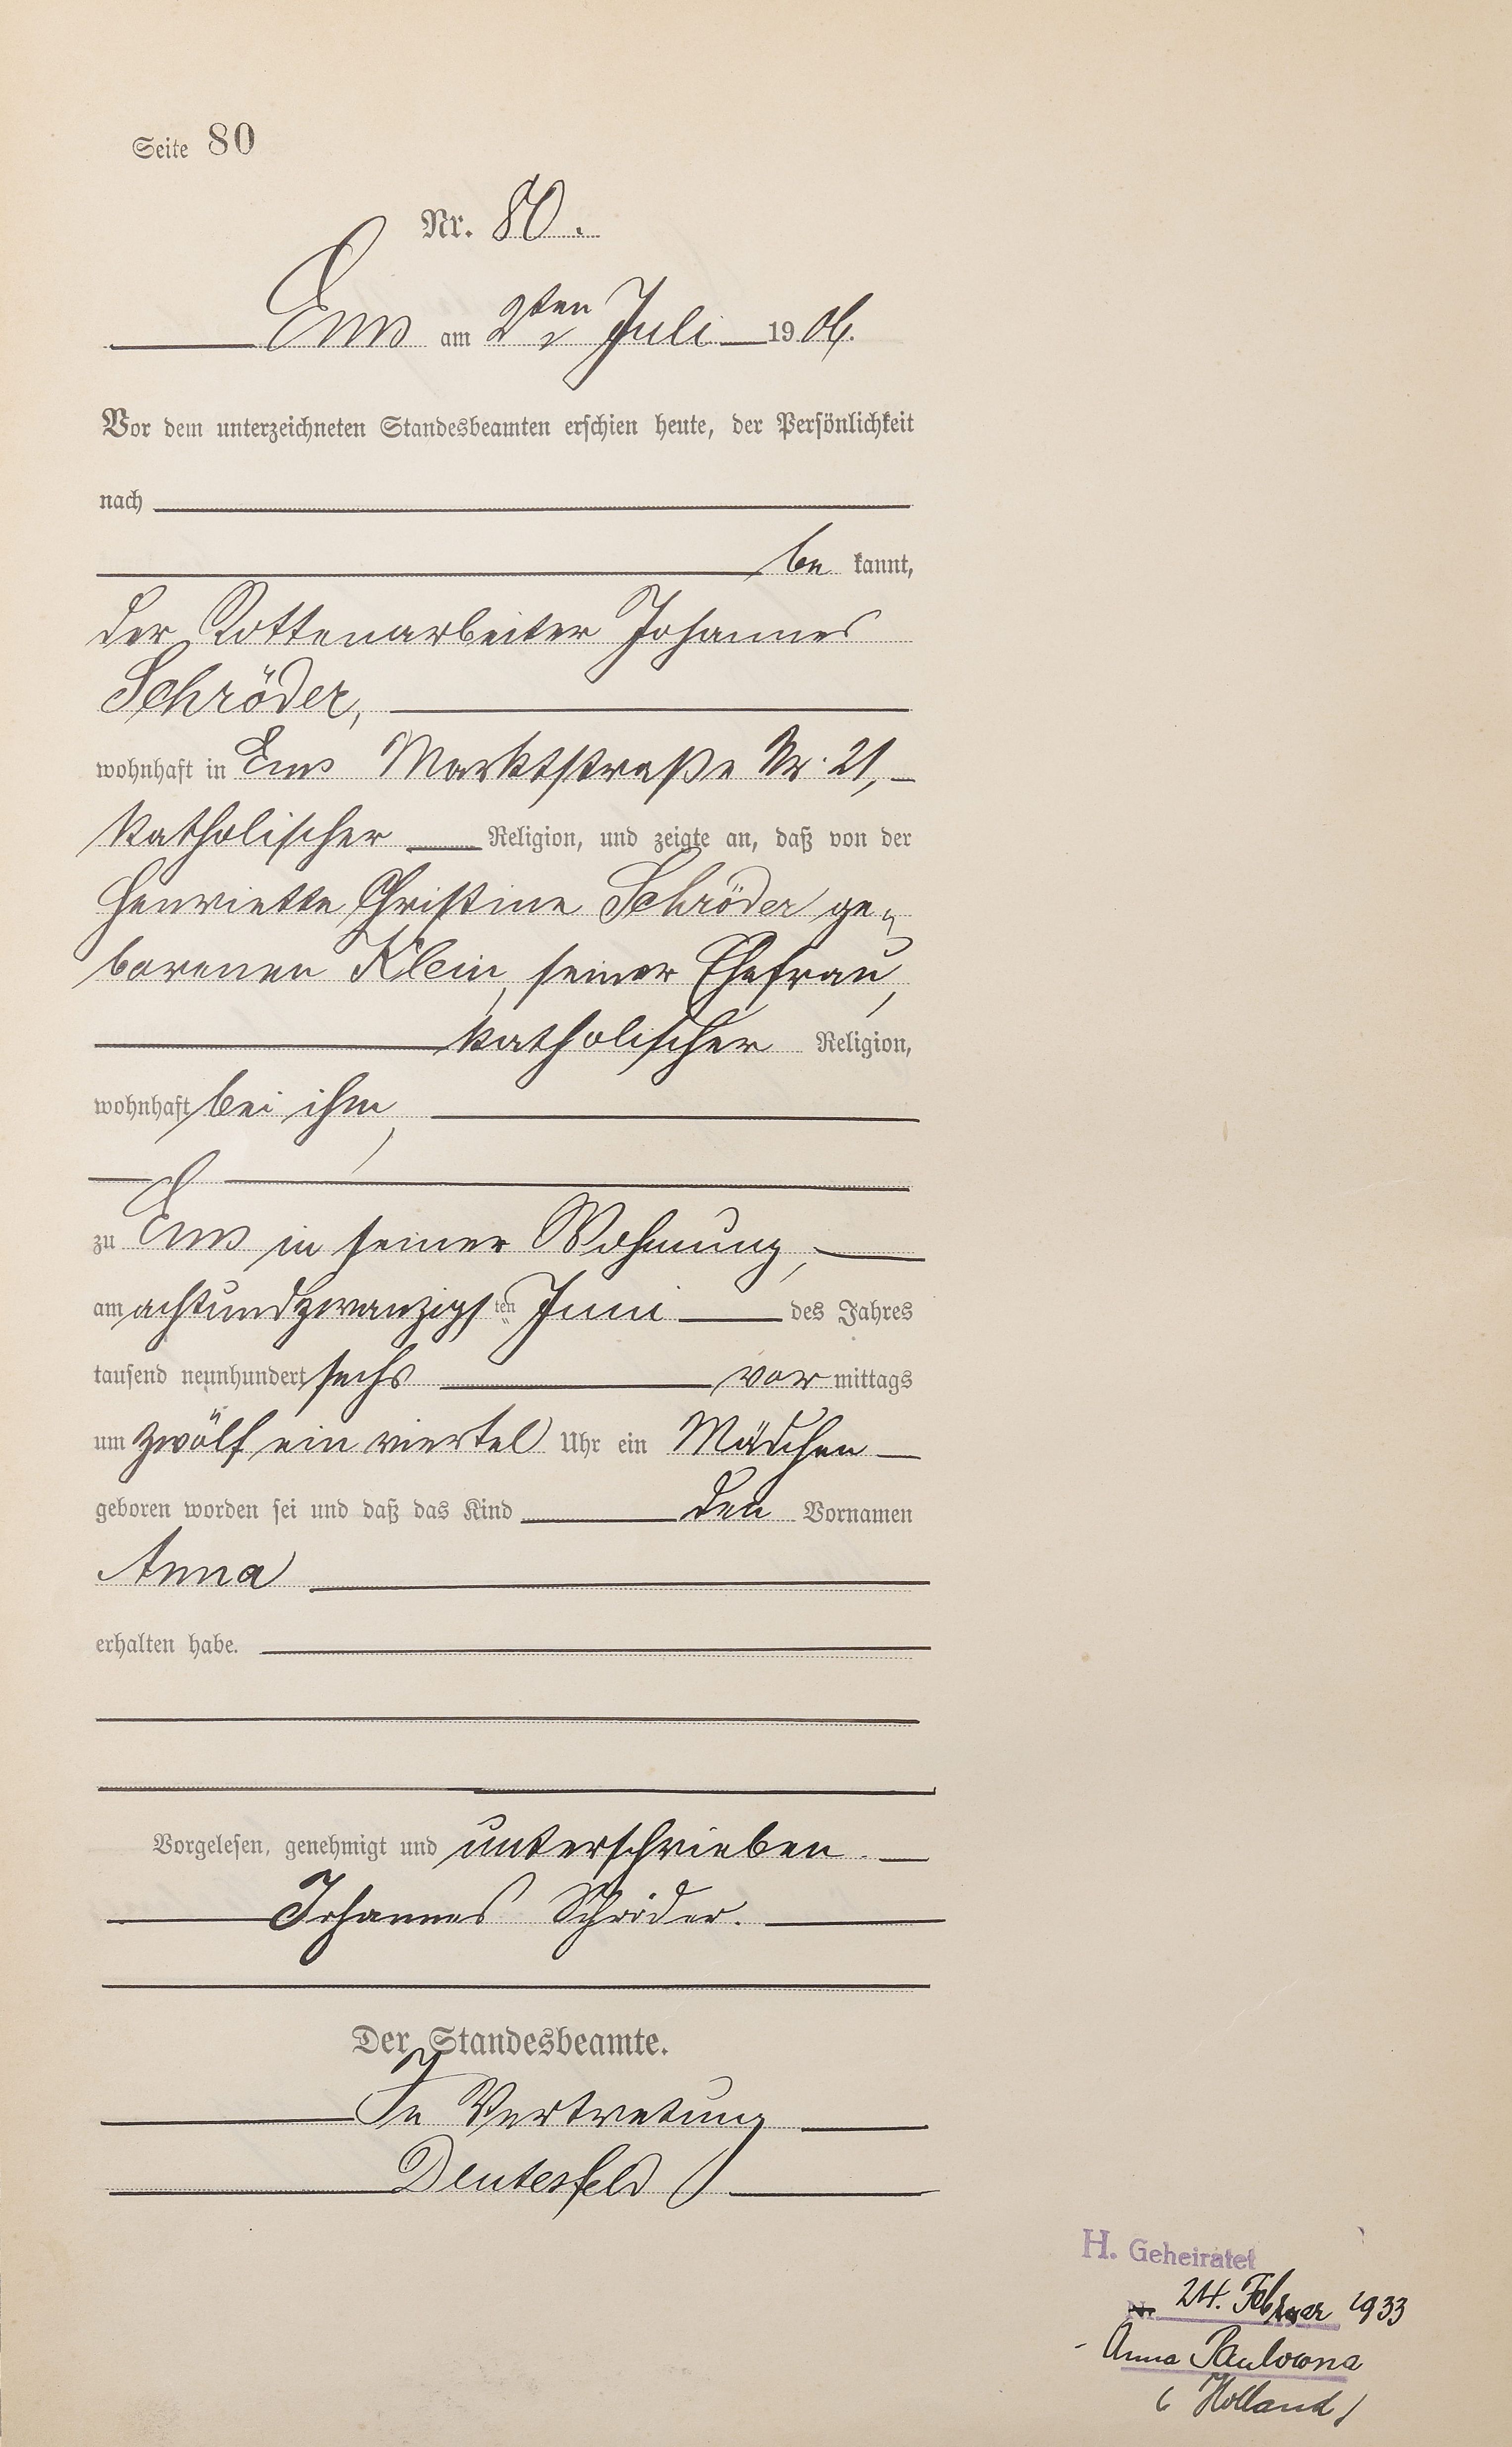 Seite 80
Nr. 80.
Ems am 2ten Juli 1906.
Vor dem unterzeichneten Standesbeamten erschien heute, der Persönlichkeit
nach
be kannt,
der Rottenarbeiter Johannes
Schröder,
wohnhaft in Ems Marktstraße Nr. 21,
katholischer Religion, und zeigte an, daß von der
Henriette Christine Schröder ge-
borenen Klein, seiner Ehefrau,
katholischer Religion,
wohnhaft bei ihm,
zu Ems in seiner Wohnung,
am achtundzwanzigsten Juni des Jahres
tausend neunhundert sechs vor mittags
um zwölf ein viertel Uhr ein Mädchen
geboren worden sei und daß das Kind den Vornamen
Anna
erhalten habe.
Vorgelesen, genehmigt und unterschrieben.
Johannes Schröder.
Der Standesbeamte.
In Vertretung
Deutesfeld
H. Geheiratet
Nr. 24. Februar 1933
Anna Paulowna
(Holland)